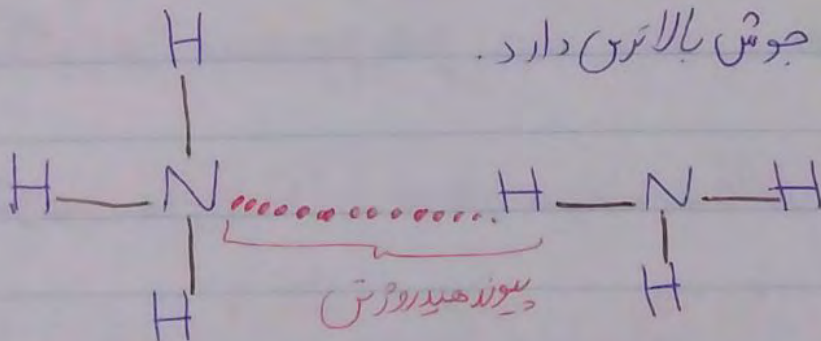 جوش بالاتری دارد.
H
H — N ............... H — N — H
H
H
پیوند هیدروژنی